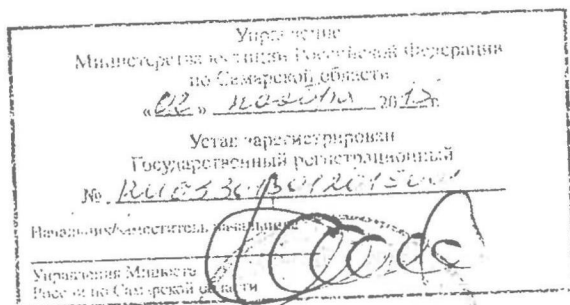 Управление
Министерства юстиции Российской Федерации
по Самарской области
«02» 2015г.
Устав зарегистрирован
Государственный регистрационный
№
Начальник/заместитель начальника
Управления Минюста
России по Самарской области